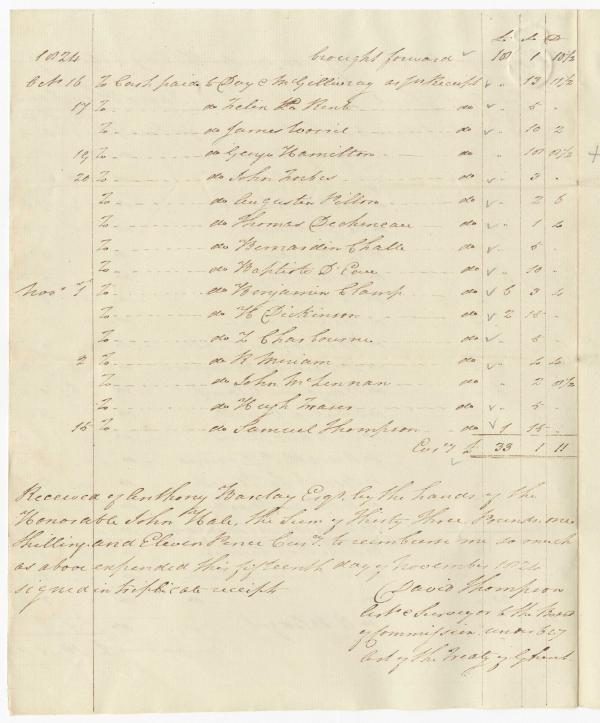 £ S D
1824 brought forward 18 1 10½
Octr 16 To Cash paid to Day & McGillivray as pr Receipt " 13 11½
17 To do Helen La Rente do " 5 "
To do James Worrie do " 10 2
19 To do George Hamilton do " 18 11½
20 To do John Forbes do " 3 "
To do Augustin Pillon do " 2 6
To do Thomas Decheneau do " 1 4
To do Bernardin Challe do " 5 "
To do Baptiste D'Eau do " 10 "
Novr 1 To do Benjamin Clamp do 6 3 4
To do H Dickinson do 2 15 "
To do Z Charbourne do " 5 "
2 To do R Miriam do " 4 4
To do John McLennan do " 2 11½
To do Hugh Fraser do " 5 "
15 To do Samuel Thompson do 1 15 "
Cury £ 33 1 11
Received of Anthony Barclay Esqr. by the hands of the
Honorable John Hale, the Sum of Thirty Three Pounds one
Shilling and Eleven Pence Cury. to reimburse me so much
as above expended this fifteenth day of November 1824
signed in triplicate receipt
David Thompson
Astr & Surveyor to the Board
of Commission under 6 & 7
Art of the Treaty of Ghent